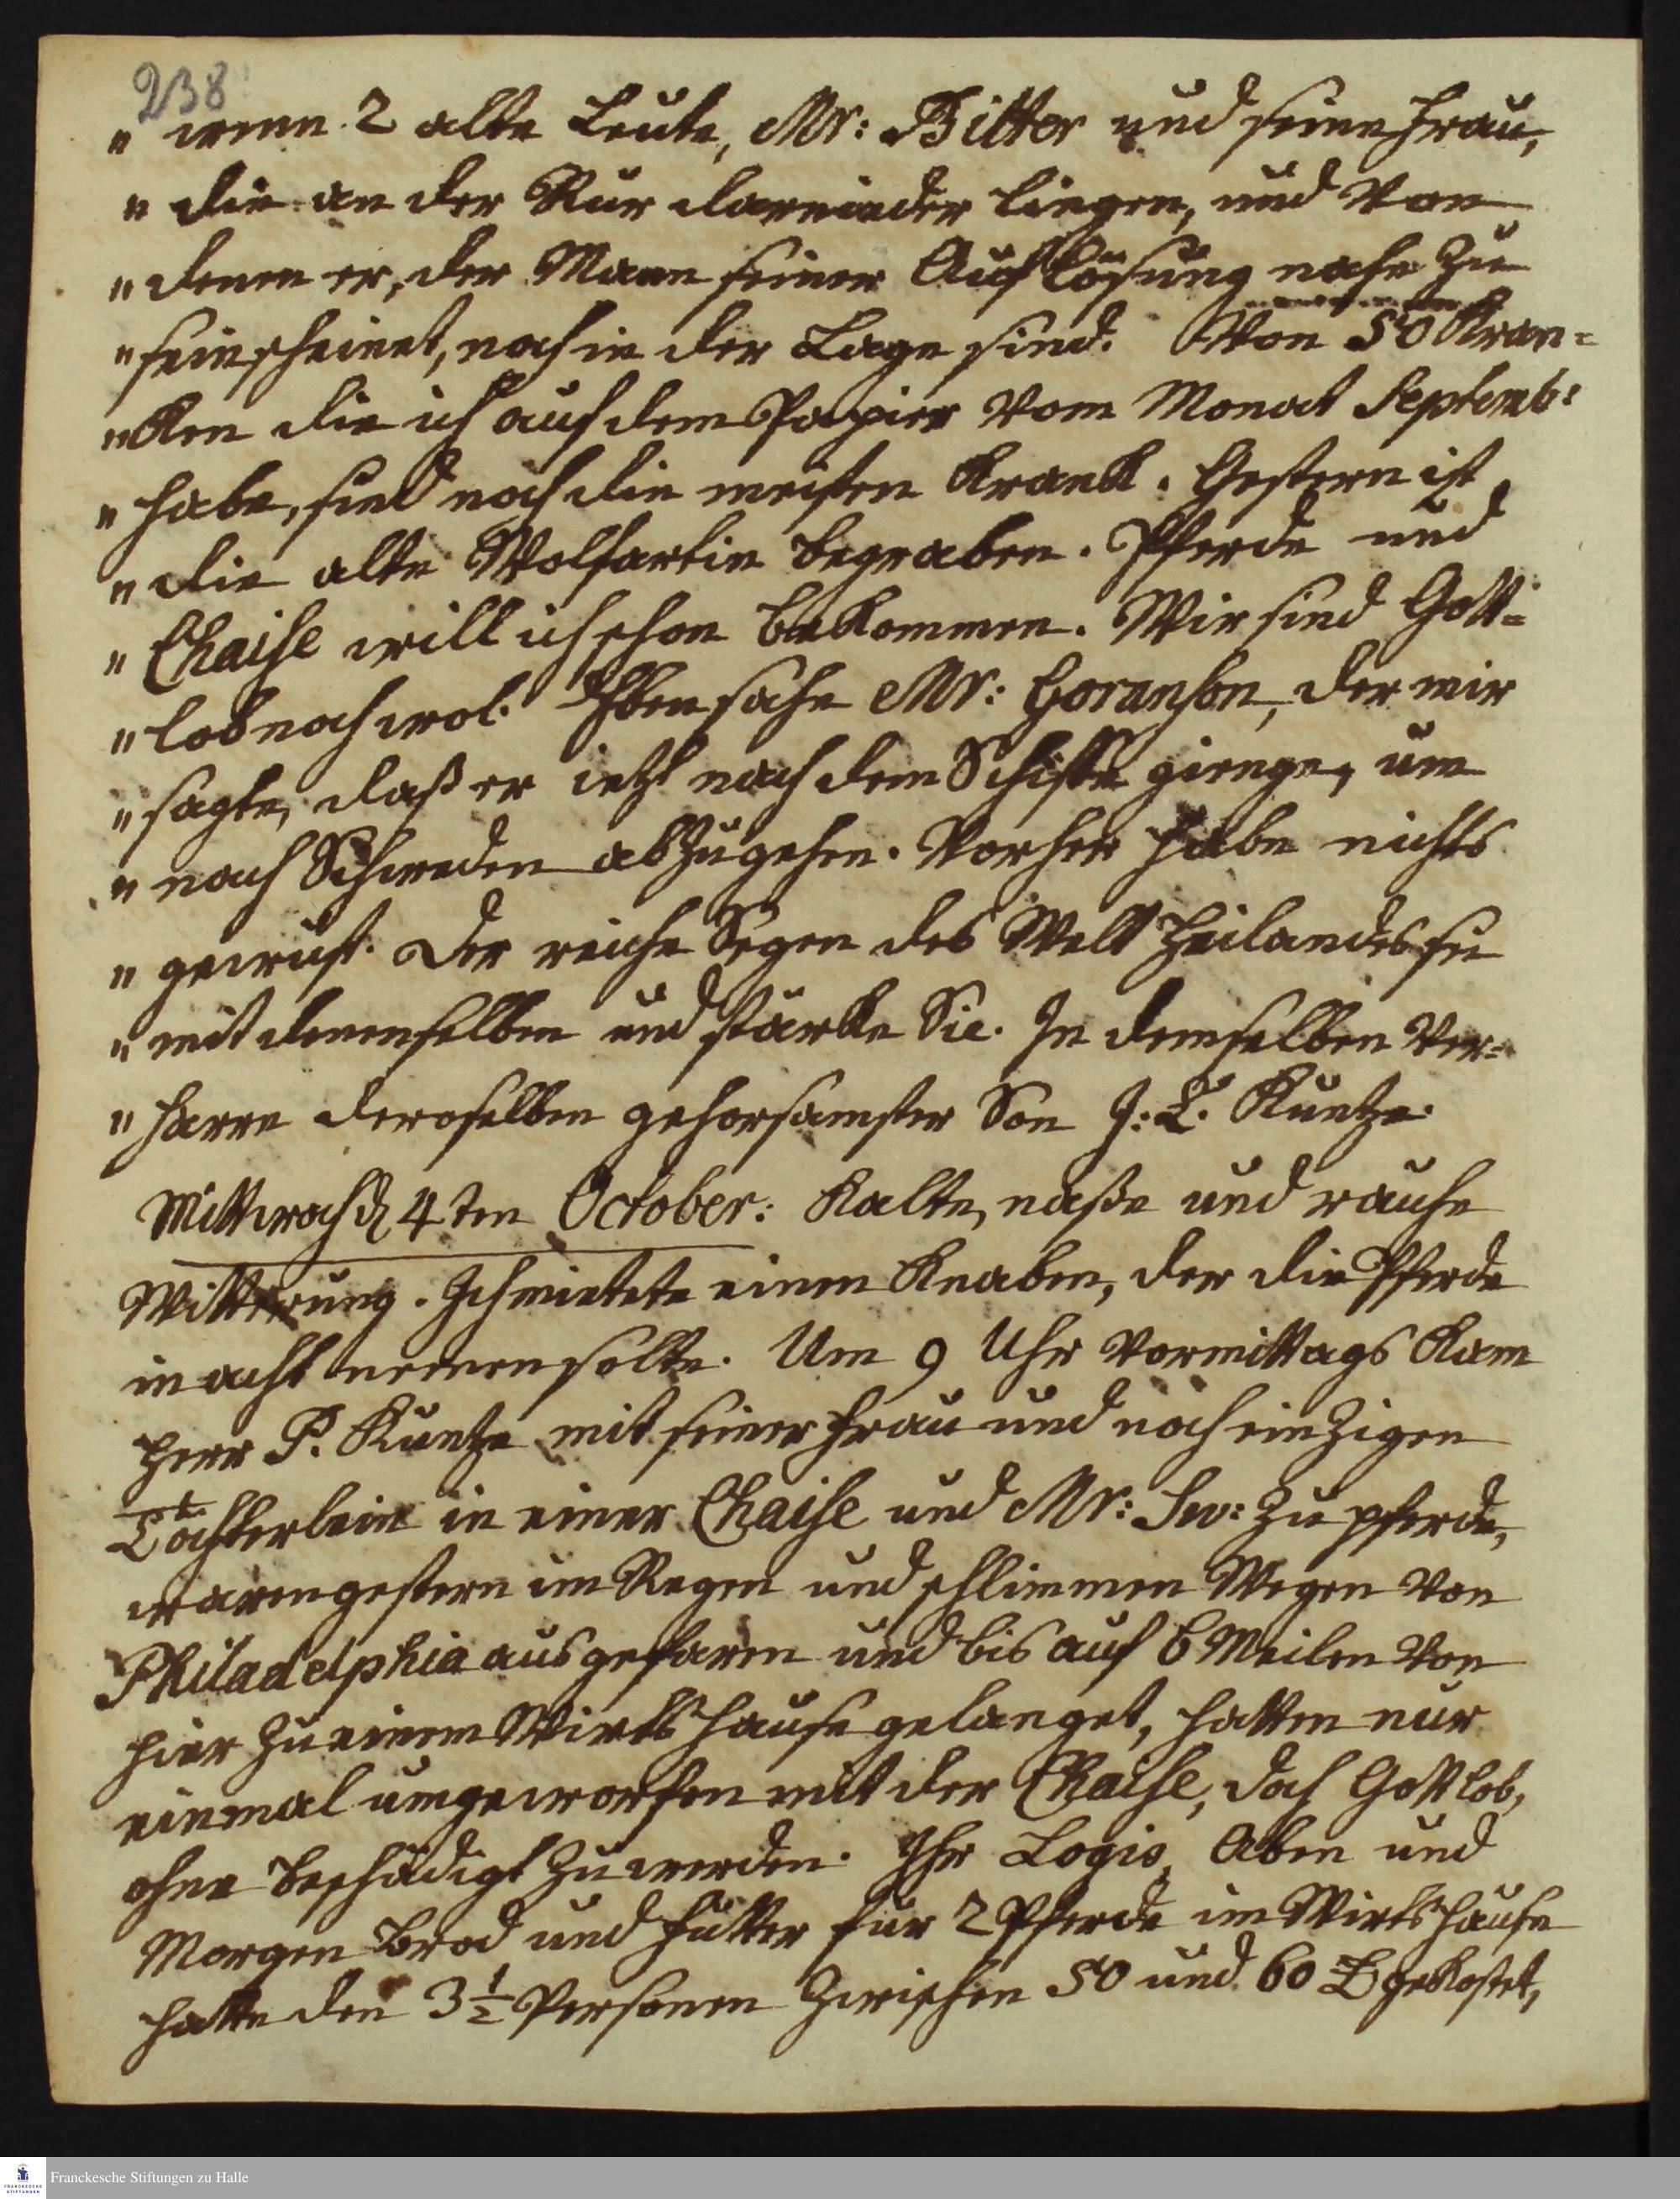 238
" wenn 2 alte Leute, Mr: Bitter und seine Frau,
" die an der Rur darnieder liegen, und von
" denen er, der Mann seiner Auflösung nahe zu
" sein scheinet, noch in der Lage sind. Von 50 Kran=
" ken die ich auf dem Papier vom Monat Septemb:
" habe, sind noch die meisten krank. Gestern ist
" die alte Wolfartin begraben. Pferde und
" Chaise will ich schon bekommen. Wir sind Gott=
" lob noch wol. Eben sahe Mr: Goranson, der mir
" sagte, daß er ietzt nach dem Schiffe gienge, um
" nach Schweden abzugehen. Vorher habe nichts
" gewust. Der reiche Segen des Welt Heilandes sei
" mit denenselben und stärke Sie. In demselben ver=
" harre deroselben gehorsamster Son J: C. Kuntze.
Mittwoch d 4ten October: Kalte, naße und rauhe
Witterung. Ich mietete einen Knaben, der die Pferde
in acht nemen solte. Um 9 Uhr vormittags kam
Herr P. Kuntze mit seiner Frau und noch einzigen
Töchterlein in einer Chaise und Mr: Sw: zu pferde,
waren gestern im Regen und schlimmen Wegen von
Philadelphia ausgefaren und bis auf 6 Meilen von
hier zu einem Wirtshause gelanget, hatten nur
einmal umgeworfen mit der Chaise, doch Gottlob,
ohne beschädigt zu werden. Ihr Logis, Aben und
Morgen Brod und Futter für 2 Pferde im Wirtshause
hatte den 3 1/2 Personen zwischen 50 und 60 £ gekostet,
Franckesche Stiftungen zu Halle
FRANCKESCHE
STIFTUNGEN